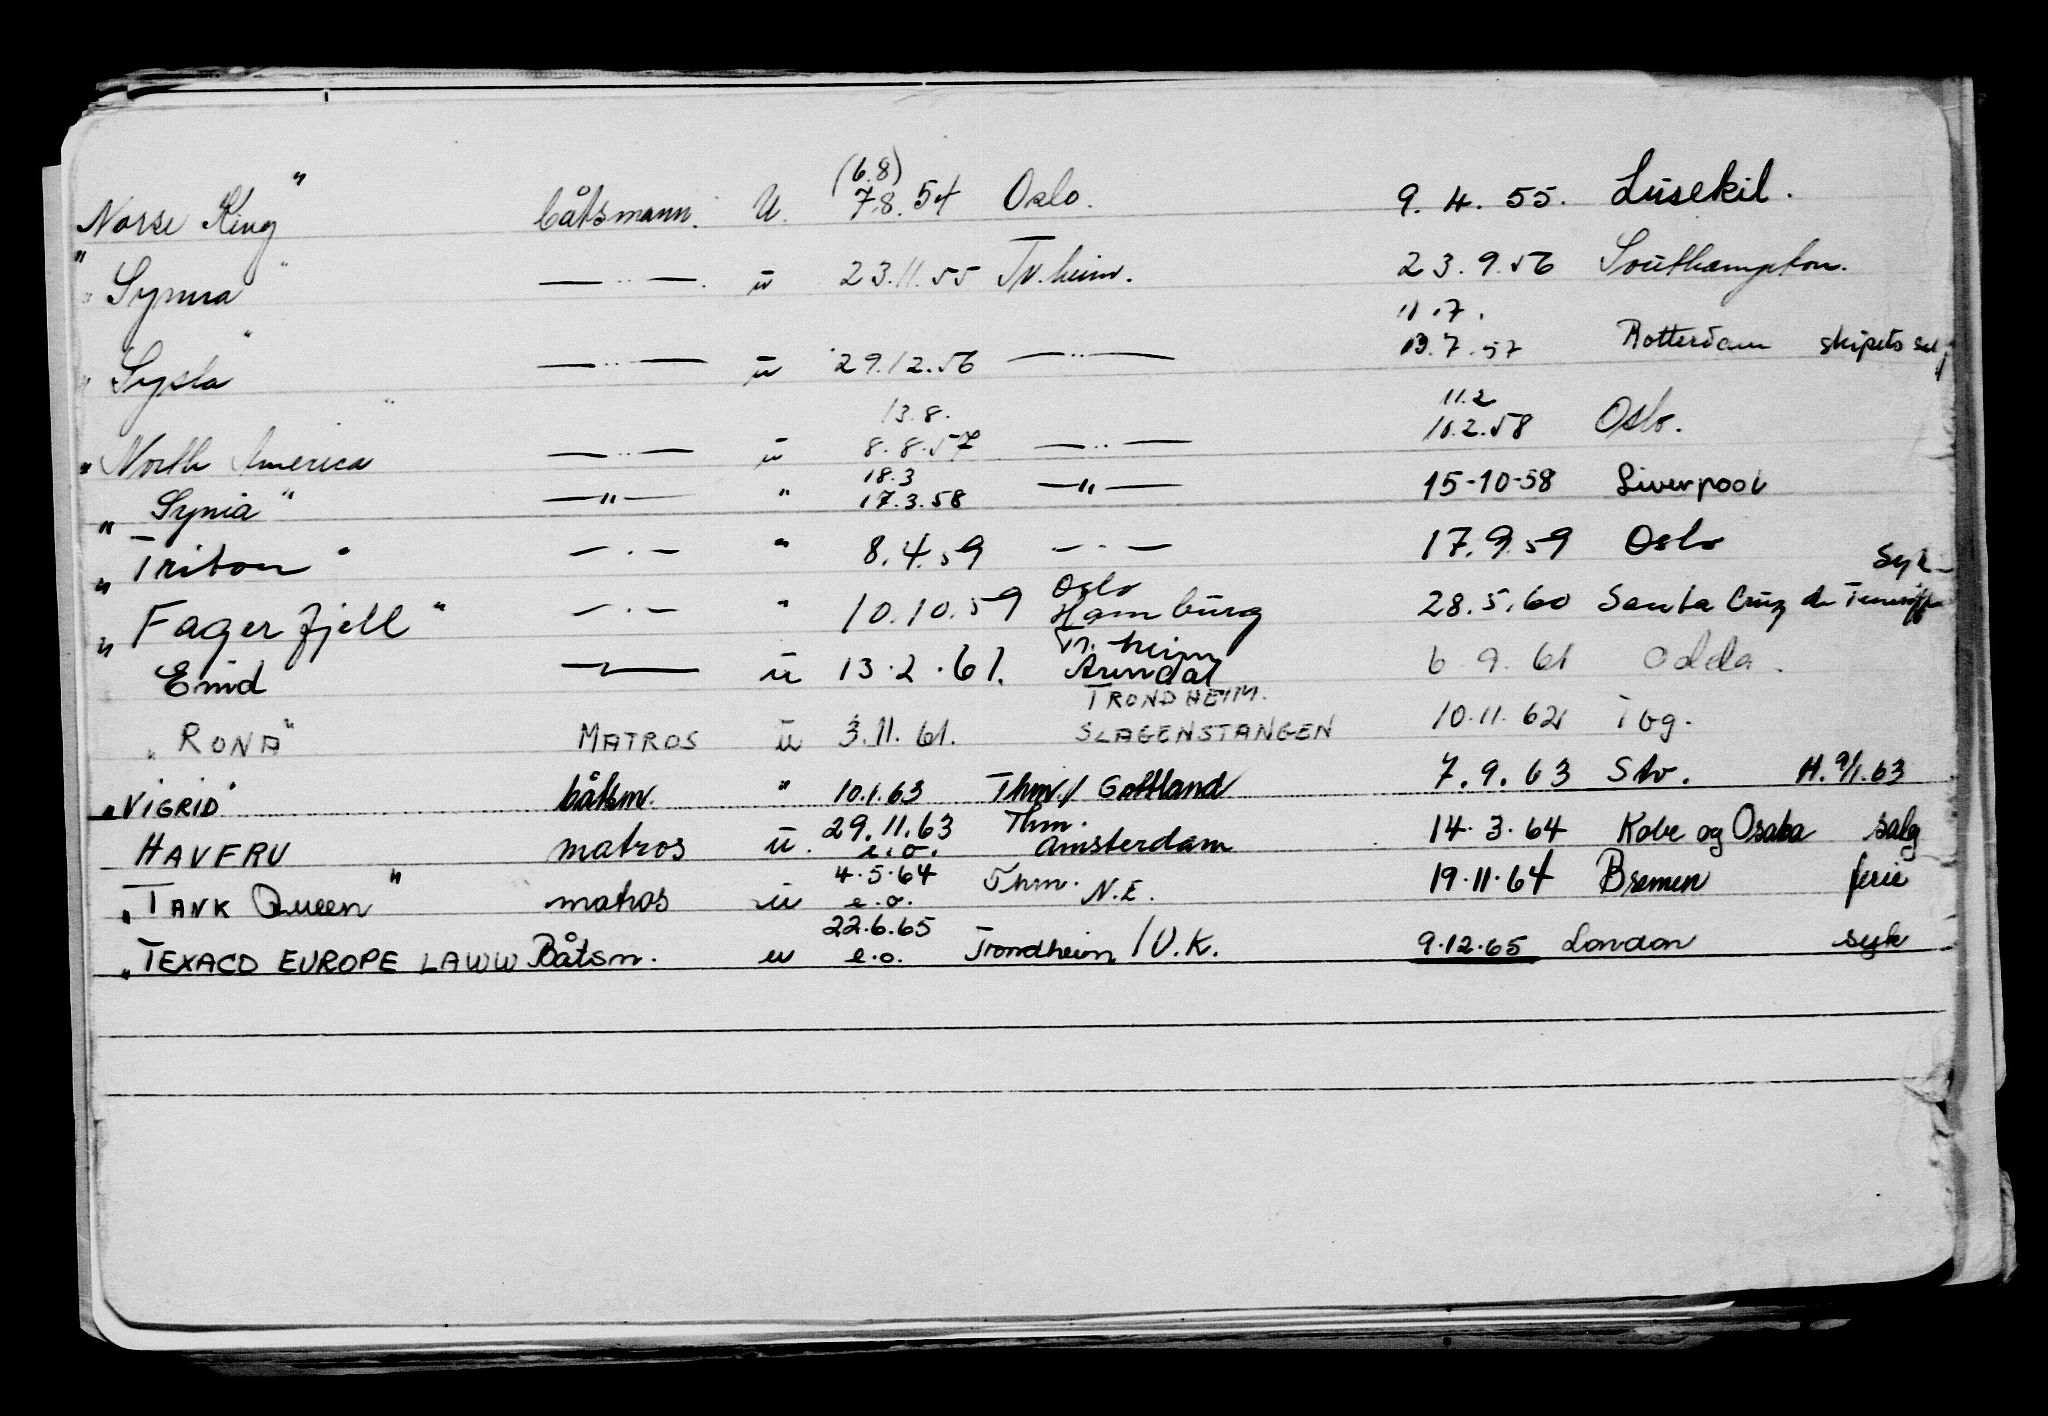 (6.8)
"Norse King" båtsmann. u. 7.8.54 Oslo. 9.4.55. Lüsekil.
"Synnia" —..—. ü 23.11.55 Tr.heim. 23.9.56 Soüthampton.
11.7.
"Sysla" —..— ü 29.12.56 —..— 13.7.57 Rotterdam skipets salg
13.8. 11.2
"North America" —..— ü 8.8.57 —..— 10.2.58 Oslo.
18.3
"Synia" —"— " 17.3.58 —"— 15-10-58 Liverpool
"Triton" —.— " 8.4.59 —.— 17.9.59 Oslo
Oslo Syk-
"Fagerfjell" —.— " 10.10.59 Hambürg 28.5.60 Santa Crüz de Teneriffe
Tr.heim
Enid —..— ü 13.2.61. Arendal 6.9.61 Odda.
TRONDHEIM.
"RONA" MATROS ü 3.11.61. SLAGENSTANGEN 10.11.62 Tbg.
"VIGRID" båtsm. " 10.1.63 Thm./ Gottland 7.9.63 Stv. H.9/1.63
29.11.63 Thm.
HAVFRU matros ü. e.o. Amsterdam 14.3.64 Kobe og Osaka salg
4.5.64 Thm.
"TANK Queen" matros ü e.o. N.E. 19.11.64 Bremen ferie
22.6.65
"TEXACO EUROPE LAWW Båtsm. u e.o. Trondheim /U.K. 9.12.65 London syk